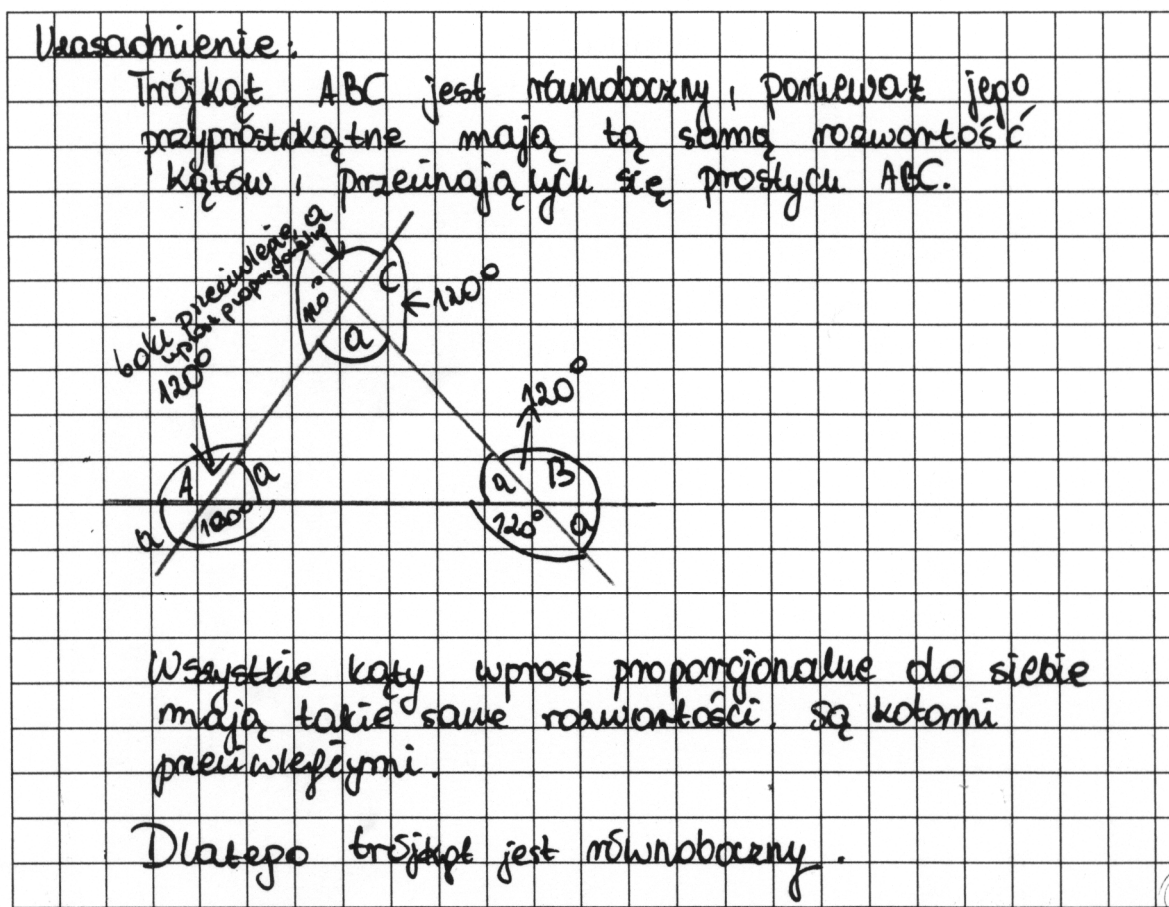 Uzasadnienie:
Trójkąt ABC jest równoboczny, ponieważ jego
przyprostokątne mają tą samą rozwartość
kątów, przecinających się prostych ABC.
boki przeciwległe
wprost proporcjonalne
a
120°
C
120°
a
120°
120°
A
a
a
120°
a
B
120°
a
Wszystkie kąty wprost proporcjonalne do siebie
mają takie same rozwartości. są kątami
przeciwległymi.
Dlatego trójkąt jest równoboczny.